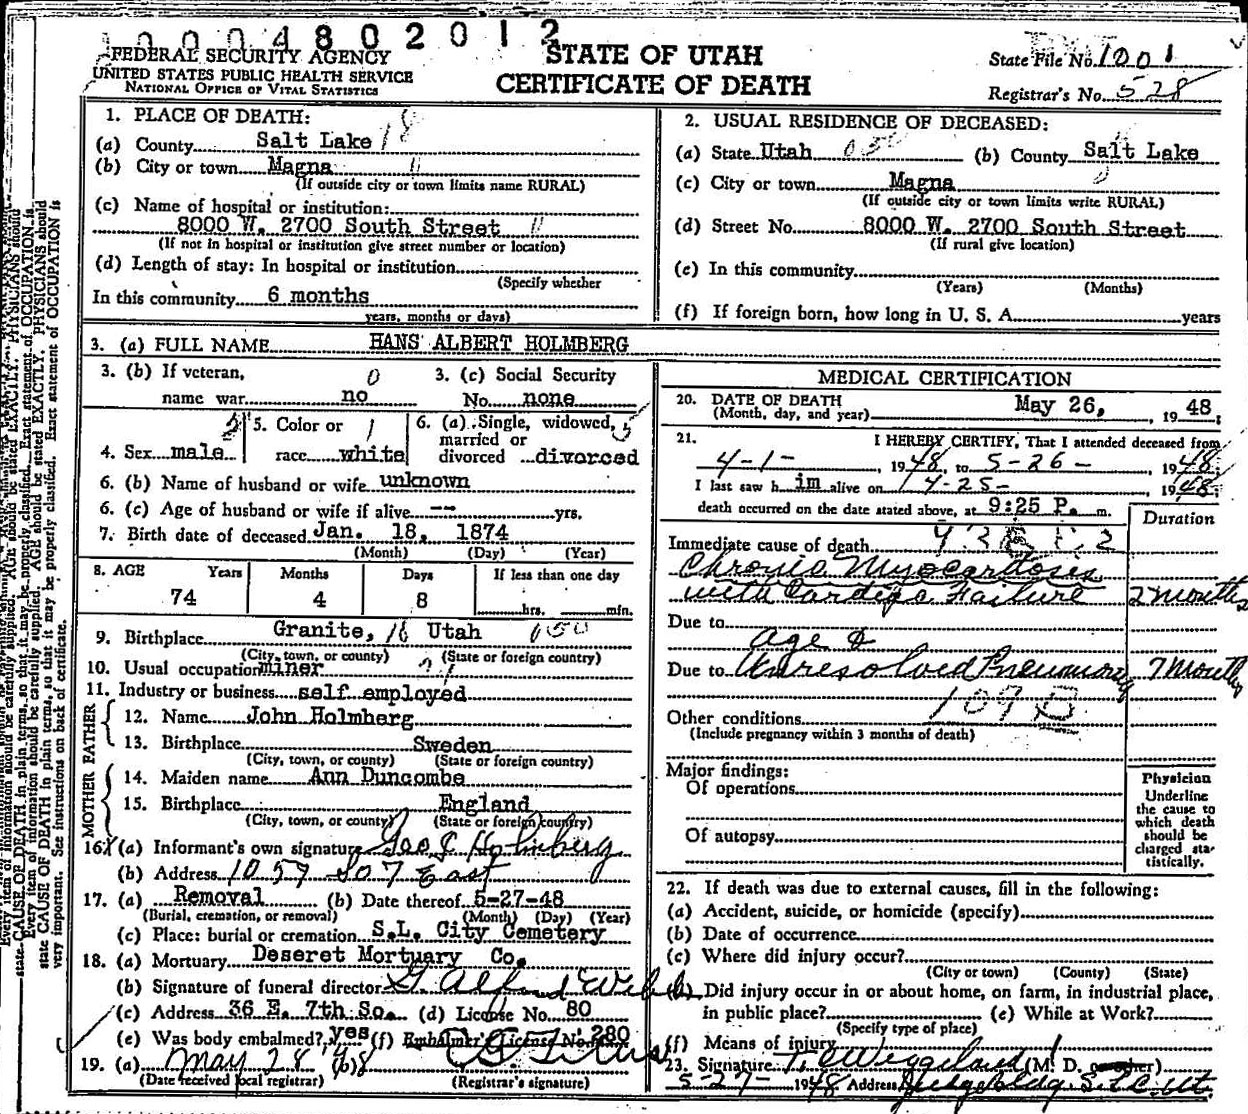 0004802012
FEDERAL SECURITY AGENCY
UNITED STATES PUBLIC HEALTH SERVICE
NATIONAL OFFICE OF VITAL STATISTICS
STATE OF UTAH
CERTIFICATE OF DEATH
State File No. 1001
Registrar's No. 528
1. PLACE OF DEATH:
(a) County Salt Lake 18
(b) City or town Magna
(If outside city or town limits name RURAL)
(c) Name of hospital or institution:
8000 W. 2700 South Street
(If not in hospital or institution give street number or location)
(d) Length of stay: In hospital or institution
(Specify whether
In this community 6 months
years, months or days)
2. USUAL RESIDENCE OF DECEASED:
(a) State Utah (b) County Salt Lake
(c) City or town Magna
(If outside city or town limits write RURAL)
(d) Street No. 8000 W. 2700 South Street
(If rural give location)
(e) In this community
(Years) (Months)
(f) If foreign born, how long in U. S. A. years
3. (a) FULL NAME HANS ALBERT HOLMBERG
3. (b) If veteran, 0 3. (c) Social Security
name war no No. none
5. Color or 1 6. (a) Single, widowed,
married or
4. Sex male race white divorced divorced
6. (b) Name of husband or wife unknown
6. (c) Age of husband or wife if alive -- yrs.
7. Birth date of deceased Jan. 18, 1874
(Month) (Day) (Year)
8. AGE Years Months Days If less than one day
74 4 8 hrs. min.
9. Birthplace Granite, Utah
(City, town, or county) (State or foreign country)
10. Usual occupation miner
11. Industry or business self employed
FATHER
12. Name John Holmberg
13. Birthplace Sweden
(City, town, or county) (State or foreign country)
MOTHER
14. Maiden name Ann Duncombe
15. Birthplace England
(City, town, or county) (State or foreign country)
16. (a) Informant's own signature Geo. E Holmberg
(b) Address 1059 So 7 East
17. (a) Removal (b) Date thereof 5-27-48
(Burial, cremation, or removal) (Month) (Day) (Year)
(c) Place: burial or cremation S.L. City Cemetery
18. (a) Mortuary Deseret Mortuary Co.
(b) Signature of funeral director
(c) Address 36 E. 7th So. (d) License No. 80
(e) Was body embalmed? yes (f) Embalmer's License No. 280
19. (a) May 28 '48 (b)
(Date received local registrar) (Registrar's signature)
MEDICAL CERTIFICATION
20. DATE OF DEATH
(Month, day, and year) May 26, 19 48
21. I HEREBY CERTIFY, That I attended deceased from
4-1-, 19 48, to 5-26-, 19 48;
I last saw h im alive on 4-25- 19 48;
death occurred on the date stated above, at 9:25 P. m.
Duration
Immediate cause of death
Chronic Myocardosis
with Cardiac Failure 2 months
Due to
Age &
Due to Unresolved Pneumonia 7 months
109 B
Other conditions
(Include pregnancy within 3 months of death)
Major findings:
Of operations
Of autopsy
Physician
Underline
the cause to
which death
should be
charged sta-
tistically.
22. If death was due to external causes, fill in the following:
(a) Accident, suicide, or homicide (specify)
(b) Date of occurrence
(c) Where did injury occur?
(City or town) (County) (State)
Did injury occur in or about home, on farm, in industrial place,
in public place? (e) While at Work?
(Specify type of place)
(f) Means of injury
23. Signature (M. D. or other)
5-27- 1948 Address Judge Bldg. S.L.C. Ut.